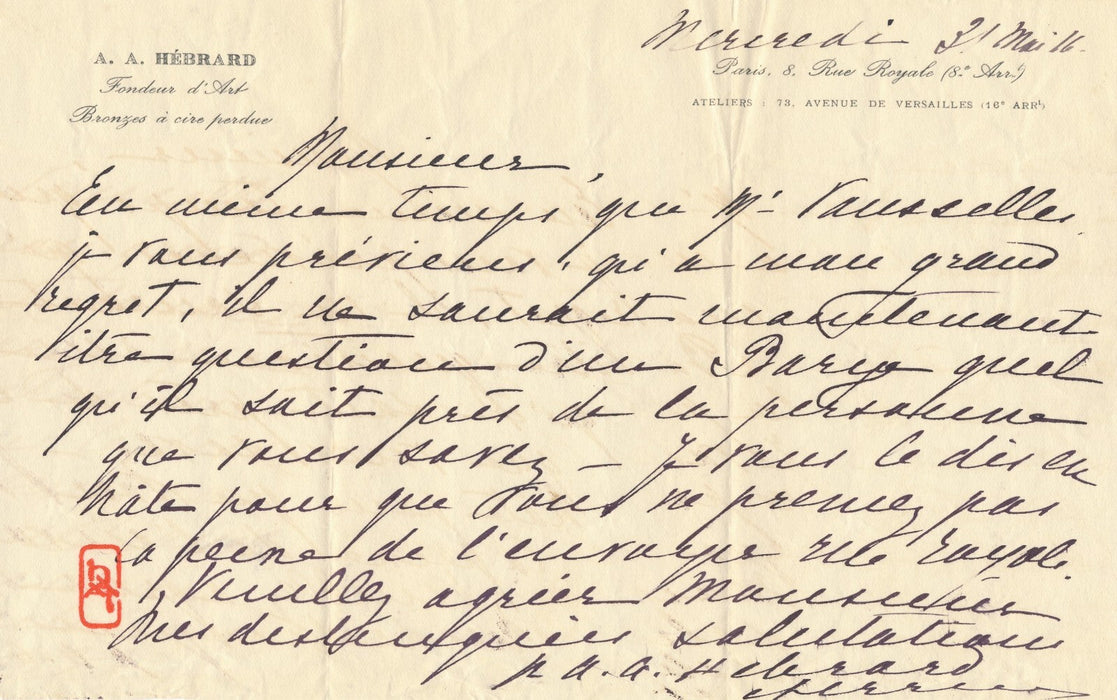 A. A. HÉBRARD
Fondeur d'Art
Bronzes à cire perdue
Mercredi 31 Mai 16.
Paris, 8, Rue Royale (8e Arrt)
ATELIERS : 73, AVENUE DE VERSAILLES (16e ARRt)
Monsieur,
En même temps que Mr Vausselles
je vous préviens, qu'à mon grand
regret, il ne saurait maintenant
être question d'un Barye quel
qu'il soit près de la personne
que vous savez — Je vous le dis en
hâte pour que vous ne preniez pas
la peine de l'envoyer rue Royale.
Veuillez agréer Monsieur
mes salutations
p a. a. Hébrard